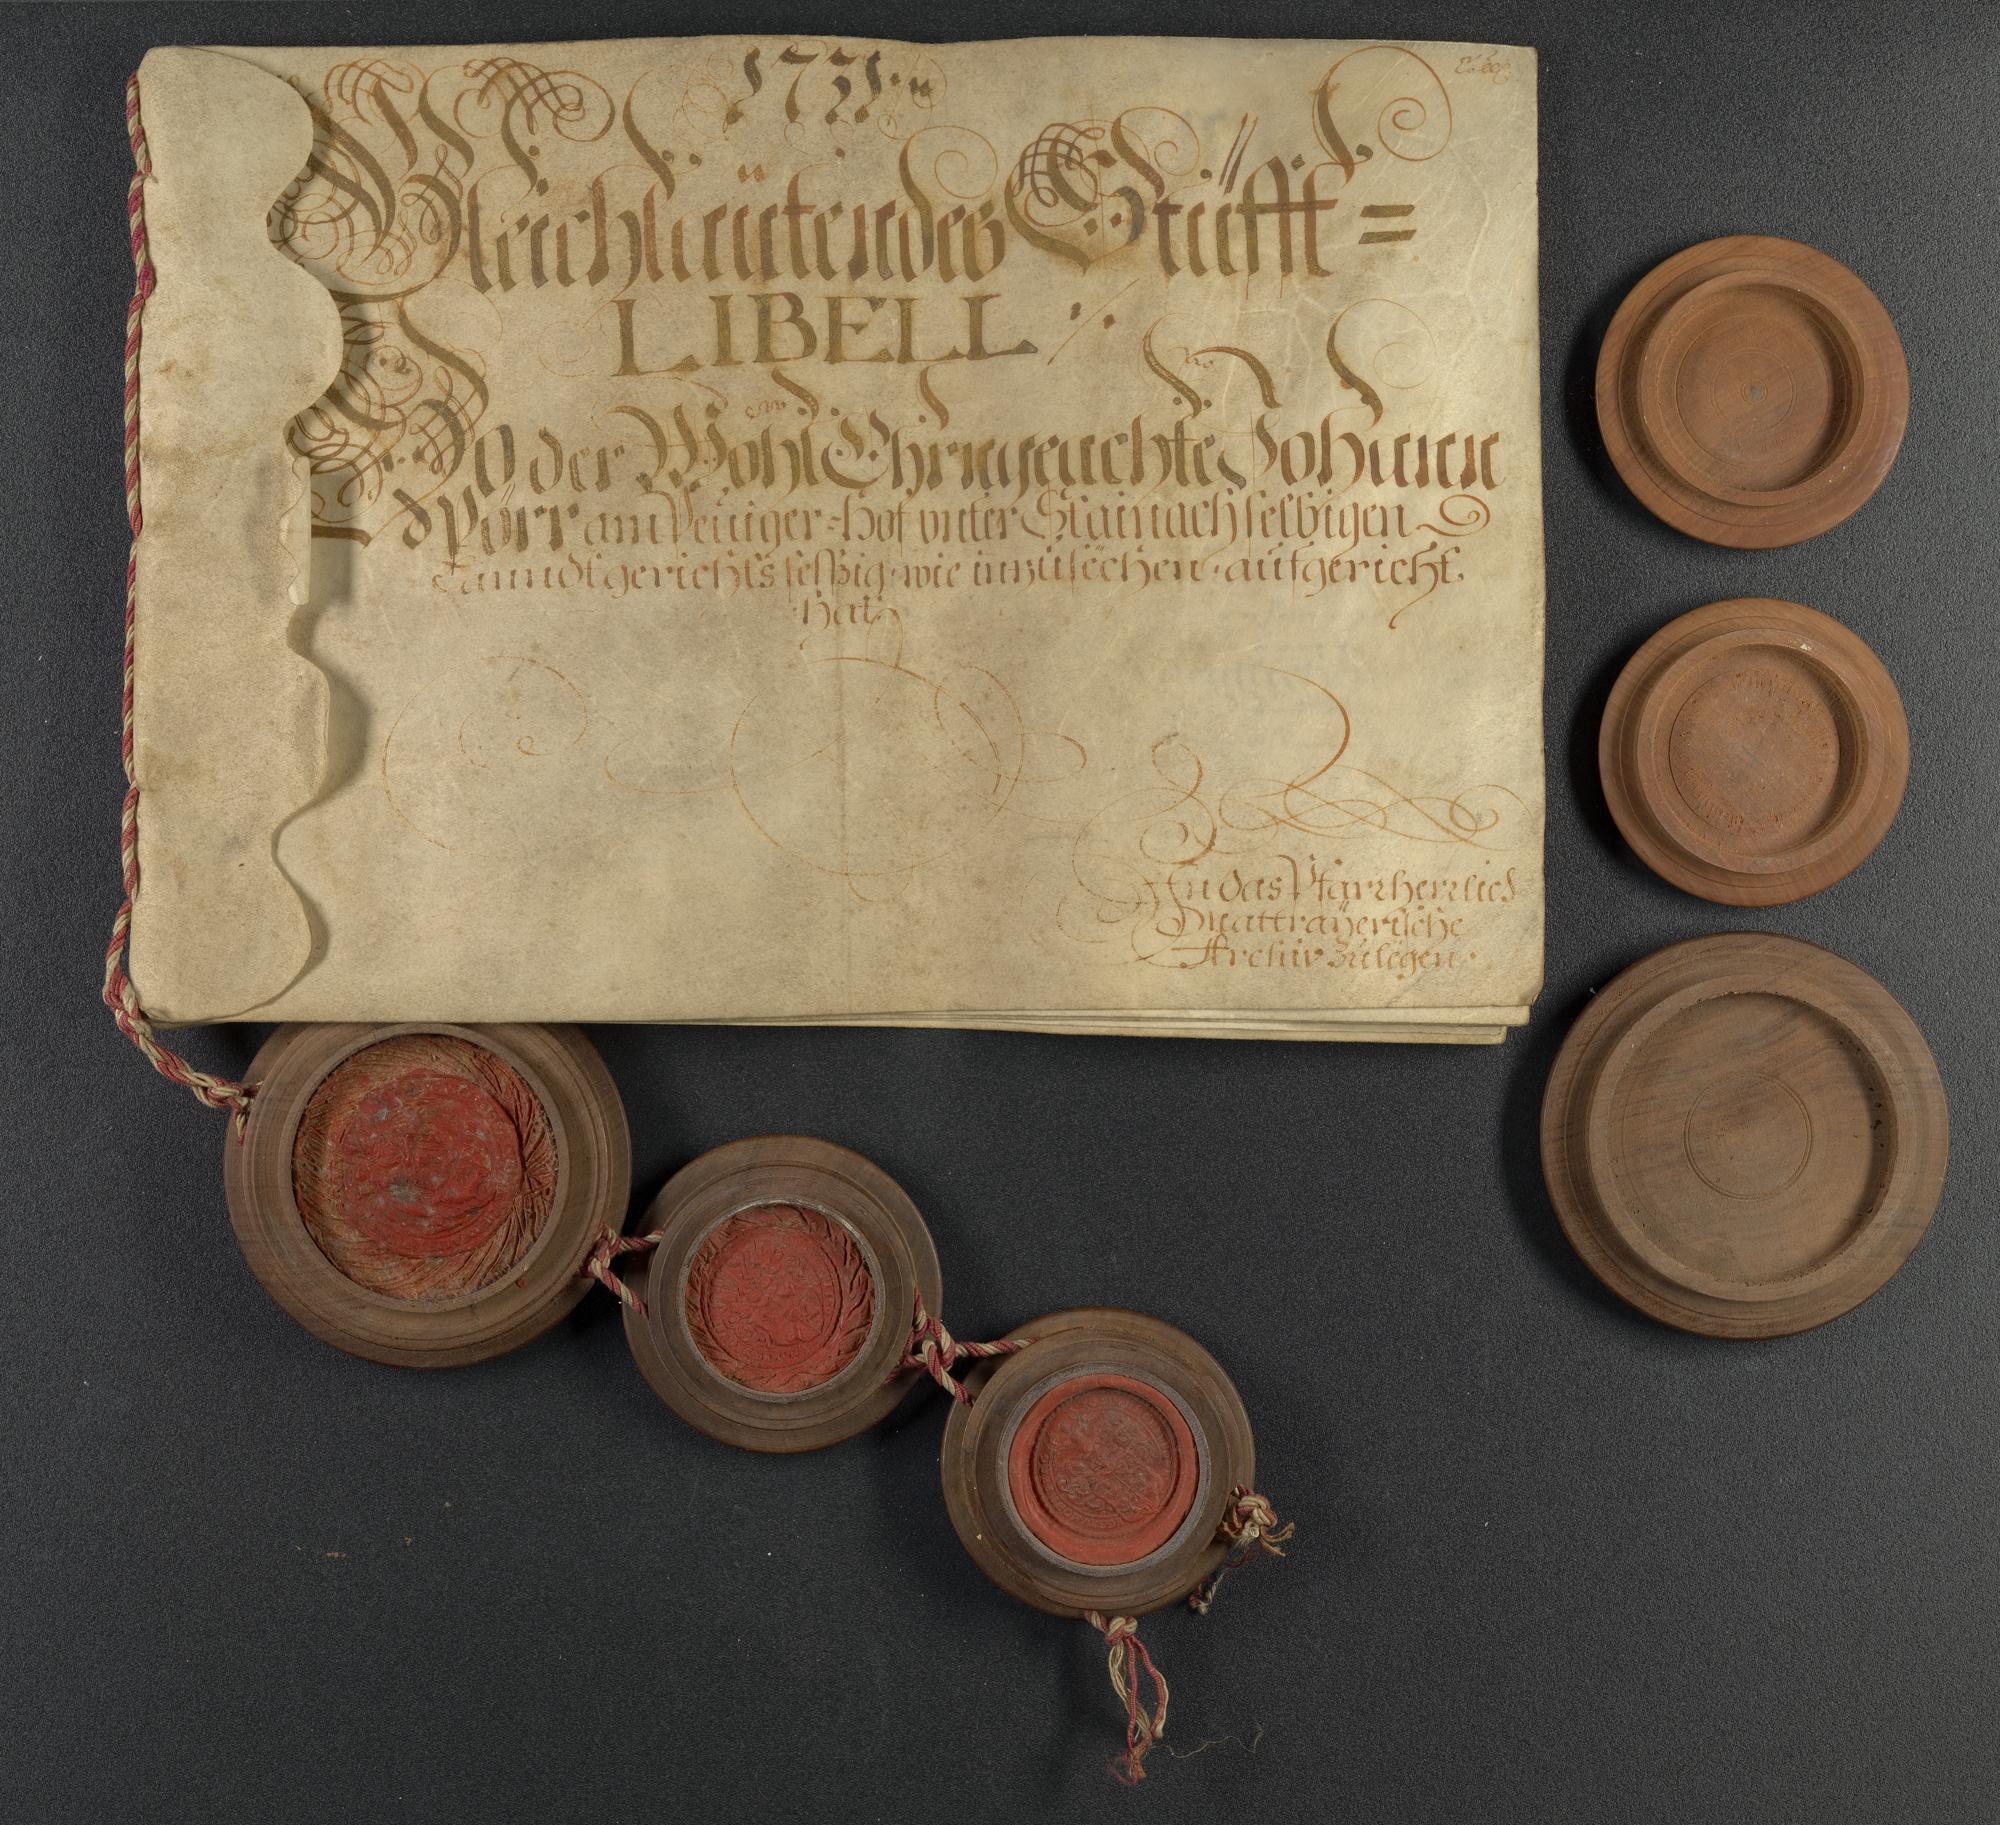 1731.
Gleichlautendes Stüfft=
LIBELL
So der Wohl Ehrngeachte Johann
Spörr am Peuiger=Hof unter Stainach selbigen
Lanndtgerichts sessig wie inzusechen aufgericht
hat
In das Pfarrherrlich
Mattrayerische
Archiv zulegen.